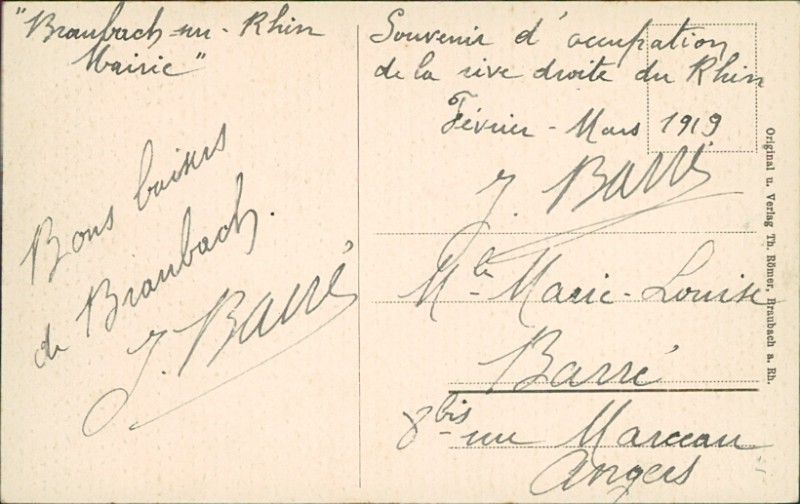 "Braubach-sur-Rhin
Mairie"
Bons baisers
de Braubach.
J. Barré
Souvenir d'occupation
de la rive droite du Rhin
Février - Mars 1919
J. Barré
Mlle Marie-Louise
Barré
8 bis rue Marceau
Angers
Original u. Verlag Th. Römer, Braubach a. Rh.